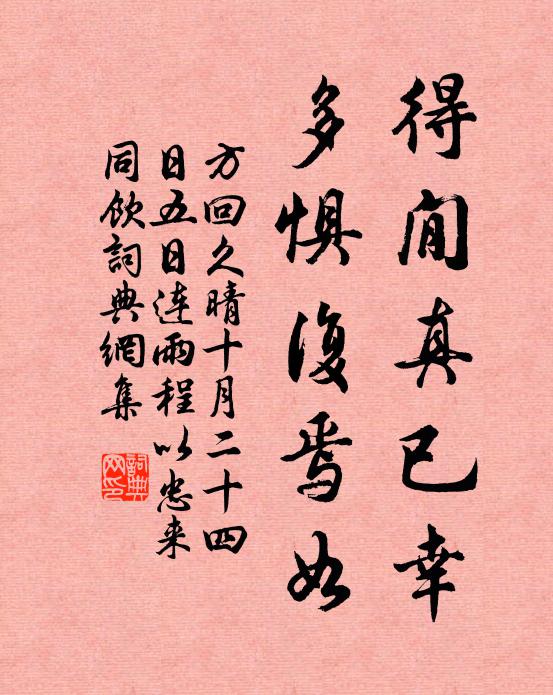 得閒真已幸
多惧復焉如
方回久晴十月二十四
日五日连雨程以忠来
同饮詞典網集
詞典
网印